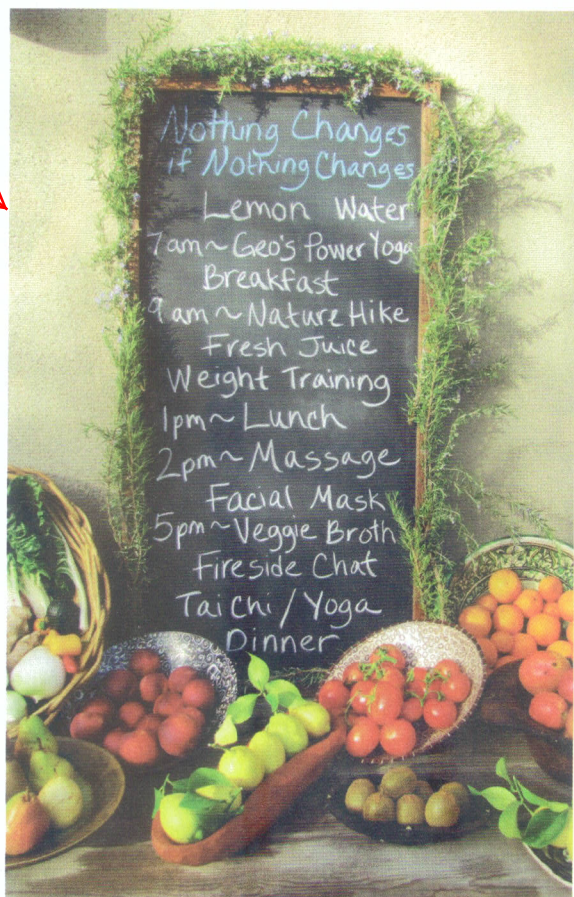 Nothing Changes
if Nothing Changes
Lemon Water
7am~Geo's Power Yoga
Breakfast
9am~Nature Hike
Fresh Juice
Weight Training
1pm~Lunch
2pm~Massage
Facial Mask
5pm~Veggie Broth
Fireside Chat
Tai Chi/Yoga
Dinner